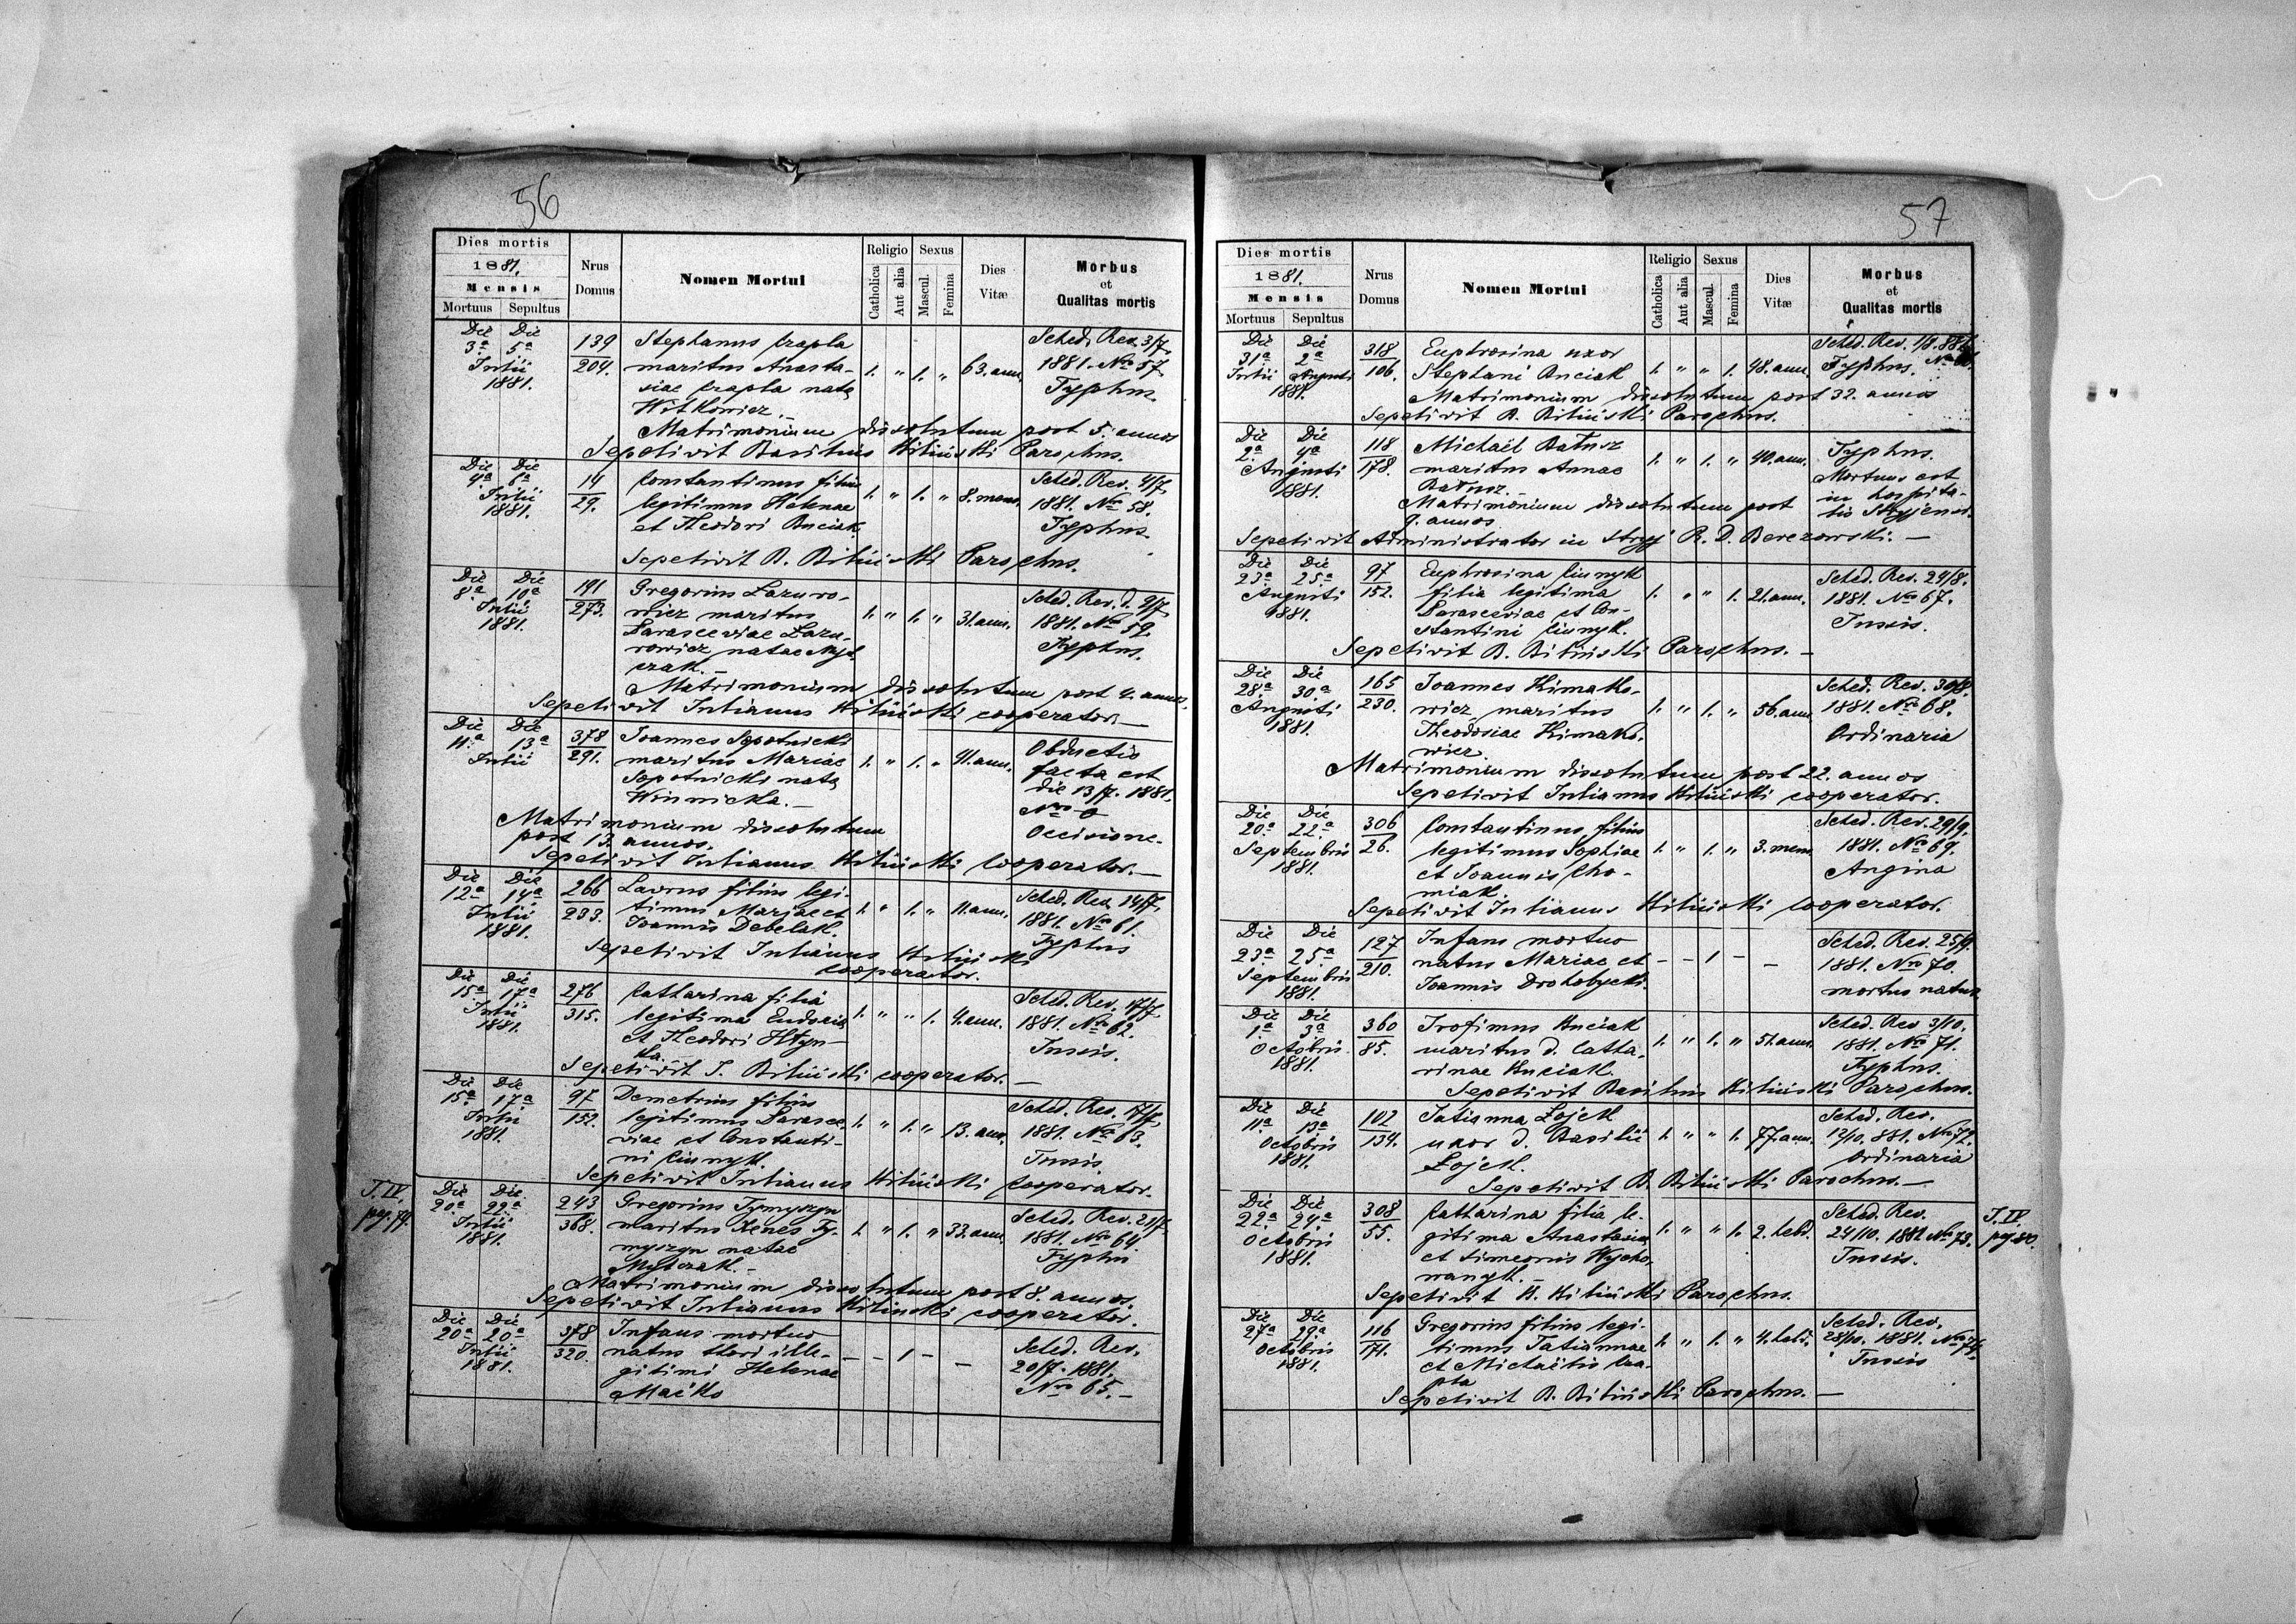 56
Dies mortis
1881.
Mensis
Mortuus Sepultus
Nrus Domus
Nomen Mortui
Religio
Catholica Aut alia
Sexus
Mascul. Femina
Dies Vitæ
Morbus et Qualitas mortis
Die Die 139 Stephanus Czapla Sched. Rev. 3/7
3a 5a 204. maritus Anasta- 1. " 1. " 63. ann. 1881. No 57
Julii siae Czapla nata Typhus.
1881. Witkowicz.
Matrimonium dissolutum post 5. annos
Sepelivit Basilius Biliński Parochus.
Die Die 14 Constantinus filius Sched. Rev. 4/7
4a 6a 29. legitimus Helenae 1. " 1. " 8. mens. 1881. No 58.
Julii et Theodori Buciak. Typhus.
1881.
Sepelivit B. Biliński Parochus.
Die Die 191 Gregorius Lazuro- Sched. Rev. d. 9/7
8a 10a 273. wicz maritus 1. " 1. " 31. ann. 1881. No 59.
Julii Parasceviae Lazu- Typhus.
1881. rowicz natae
czak. –
Matrimonium dissolutum post 4. annos.
Sepelivit Julianus Biliński cooperator. –
Die Die 378 Joannes Sopotnicki Obductio
11a 13a 291. maritus Mariae 1. " 1. " 41. ann. facta est
Julii Sopotnicki nata die 13/7. 1881.
Winnicka. – Nro 0
Matrimonium dissolutum Occisione.
post 13. annos.
Sepelivit Julianus Biliński Cooperator. –
Die Die 266 Laurus filius legi- Sched. Rev. 14/7.
12a 14a 233. timus Mariae et 1. " 1. " 11. ann. 1881. No 61.
Julii Joannis Debelak. Typhus
1881. Sepelivit Julianus Biliński
cooperator.
Die Die 276 Catharina filia Sched. Rev. 17/7
15a 17a 315. legitima Eudociae 1. " " 1. 4. ann. 1881. No 62.
Julii et Theodori Hłyn- Tussis.
1881. ka.
Sepelivit J. Biliński cooperator. –
Die Die 97 Demetrius filius Sched. Rev. 17/7
15a 17a 152. legitimus Parasce- 1. " 1. " 13. ann. 1881. No 63.
Julii viae et Constanti- Tussis.
1881. ni
Sepelivit Julianus Biliński Cooperator.
T. IV.
pag. 79.
Die Die 243 Gregorius Tymyszyn Sched. Rev. 21/7.
20a 22a 368. maritus Xenes Ty- 1. " 1. " 33. ann. 1881. No 64.
Julii myszyn natae Typhus
1881.
Matrimonium dissolutum post 8. annos.
Sepelivit Julianus Biliński cooperator.
Die Die 378 Infans mortuo Sched. Rev.
20a 20a 320. natus thori ille- – – 1 – – 20/7. 1881.
Julii gitimi Helenae Nro 65. –
1881. Maćko
57
Dies mortis
1881.
Mensis
Mortuus Sepultus
Nrus Domus
Nomen Mortui
Religio
Catholica Aut alia
Sexus
Mascul. Femina
Dies Vitæ
Morbus et Qualitas mortis
Die Die 318 Euphrosina uxor Sched. Rev. 1/8. 881.
31a 2a 106. Stephani Buciak 1. " " 1. 48. ann. Typhus.
Julii Augusti Matrimonium dissolutum post 32. annos
1881. Sepelivit B. Biliński Parochus.
Die Die 118 Michaël Batusz Typhus.
2a 4a 178. maritus Annae 1. " 1. " 40. ann. Mortuus est
Augusti Batusz. – in hospita-
1881. Matrimonium dissolutum post lio Stryjensi.
9. annos
Sepelivit Administrator in Stryj R. D. Berezowski. –
Die Die 97 Euphrosina Sched. Rev. 24/8.
23a 25a 152. filia legitima 1. " " 1. 21. ann. 1881. No 67.
Augusti Parasceviae et Con- Tussis.
1881. stantini
Sepelivit B. Biliński Parochus. –
Die Die 165 Joannes Kimako- Sched. Rev. 30/8.
28a 30a 230. wicz maritus 1. " 1. " 56. ann. 1881. No 68.
Augusti Theodosiae Kimako- Ordinaria
1881. wicz
Matrimonium dissolutum post 22. annos
Sepelivit Julianus Biliński cooperator.
Die Die 306 Constantinus filius Sched. Rev. 29/9.
20a 22a 26. legitimus Sophiae 1. " 1. " 3. mens. 1881. No 69.
Septembris et Joannis Cho- Angina
1881. miak.
Sepelivit Julianus Biliński Cooperator.
Die Die 127 Infans mortuo Sched. Rev. 25/9.
23a 25a 210. natus Mariae et – – 1 – – 1881. Nro 70.
Septembris Joannis Drohobycki. mortuo natus.
1881.
Die Die 360 Trofimus Buciak Sched. Rev 3/10.
1a 3a 85. maritus d. Catha- 1. " 1. " 51. ann. 1881. No 71.
Octobris rinae Buciak. Typhus.
1881. Sepelivit Basilius Biliński Parochus.
Die Die 102 Tatianna Łojek Sched. Rev.
11a 13a 134. uxor d. Basilii 1. " " 1. 77. ann. 12/10. 881. No 72.
Octobris Łojek. Ordinaria
1881. Sepelivit B. Biliński Parochus. –
Die Die 308 Catharina filia le- Sched. Rev.
22a 24a 55. gitima Anastasiae 1. " " 1. 2. hebd. 24/10. 1881 No 73.
Octobris et Simeonis Wycho- Tussis.
1881. wanyk. –
T. IV.
pag. 80.
Sepelivit B. Biliński Parochus.
Die Die 116 Gregorius filius legi- Sched. Rev.
27a 29a 171. timus Tatiannae 1. " 1. " 4. hebd. 28/10. 1881. No 74.
Octobris et Michaëlis Cza- Tussis
1881. pla
Sepelivit B. Biliński Parochus. –